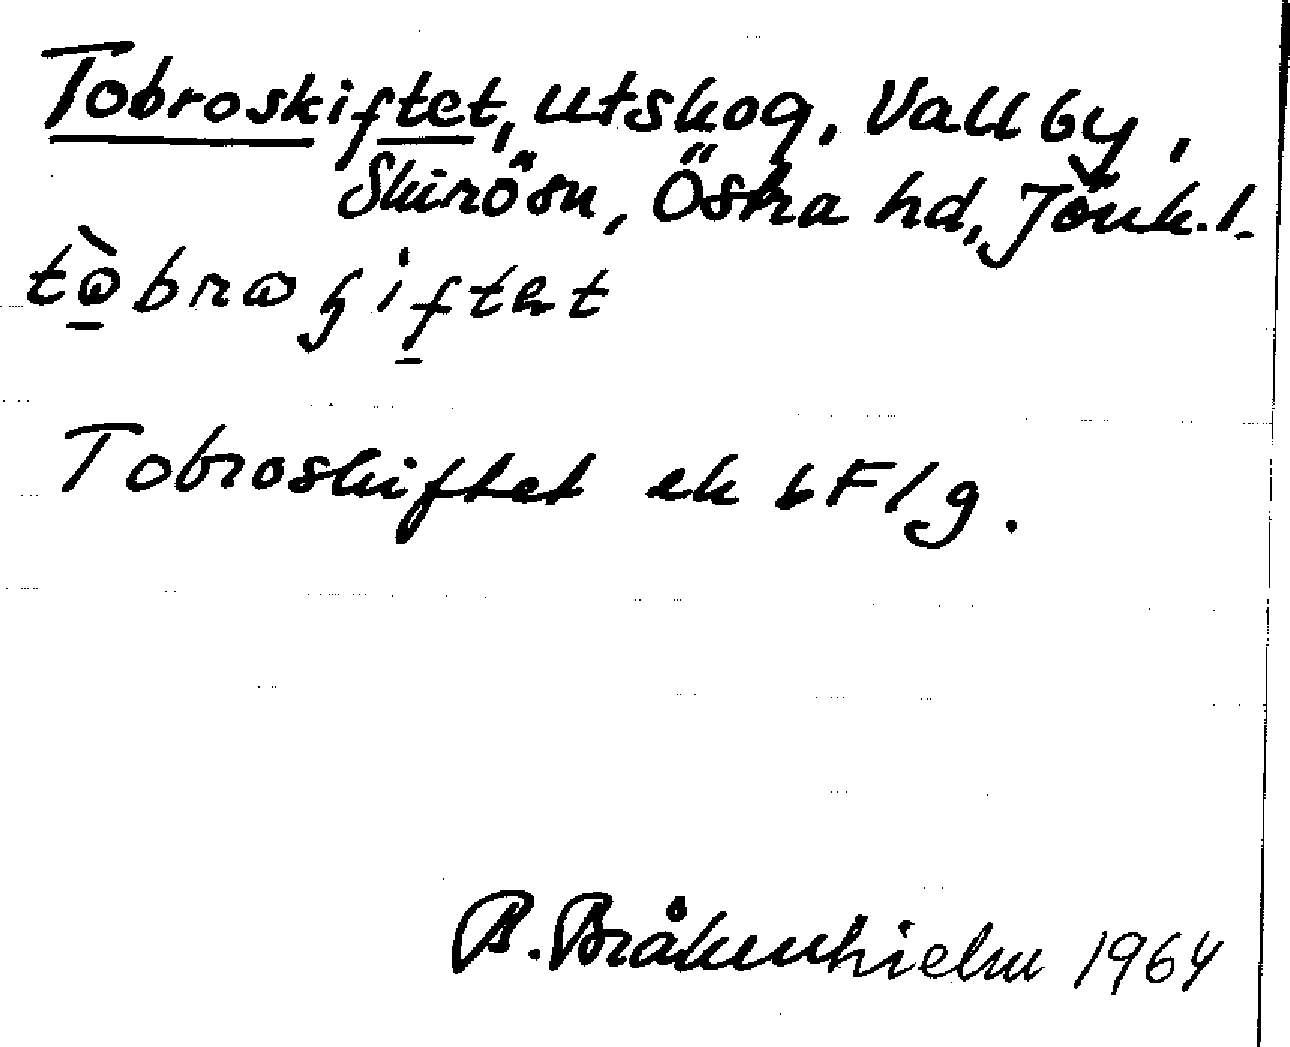 Tobroskiftet, utskog, Vallby,
Skirösn, Östra hd, Jönk.l.
tòbroʂiftet
Tobroskiftet ek bF/g.
B. Bråkenhielm 1964